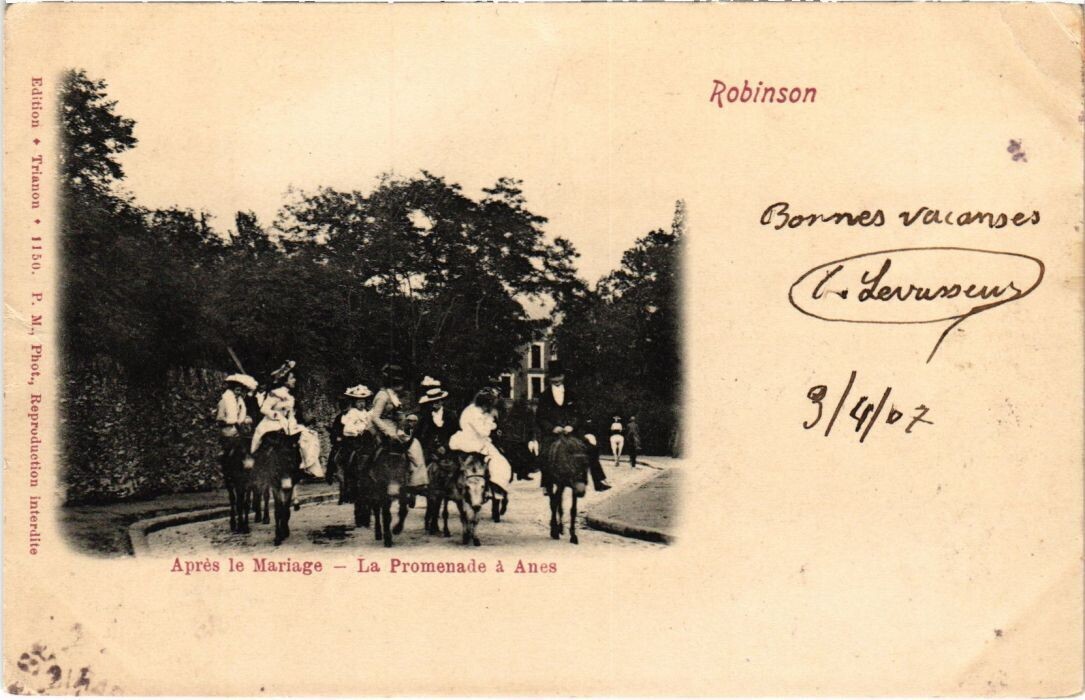 Robinson
Bonnes vacanses
Levasseur
9/4/07
Après le Mariage – La Promenade à Anes
Edition ♦ Trianon ♦ 1150. P. M., Phot., Reproduction interdite